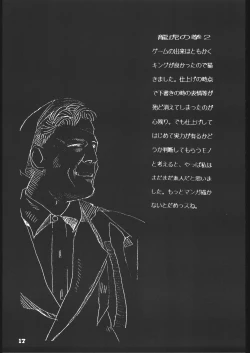 龍虎の拳2
ゲームの出来はともかく
キングが良かったので描
きました。仕上げの時点
で下書きの時の表情等が
死ど消えてしまったのが
心残り。でも仕上げして
はじめて実力が有るかど
うか判断してもらうモノ
と考えると、やっぱ私は
まだまだあんだと思いま
した。もっとマンガ描か
ないとだめっスね。
17